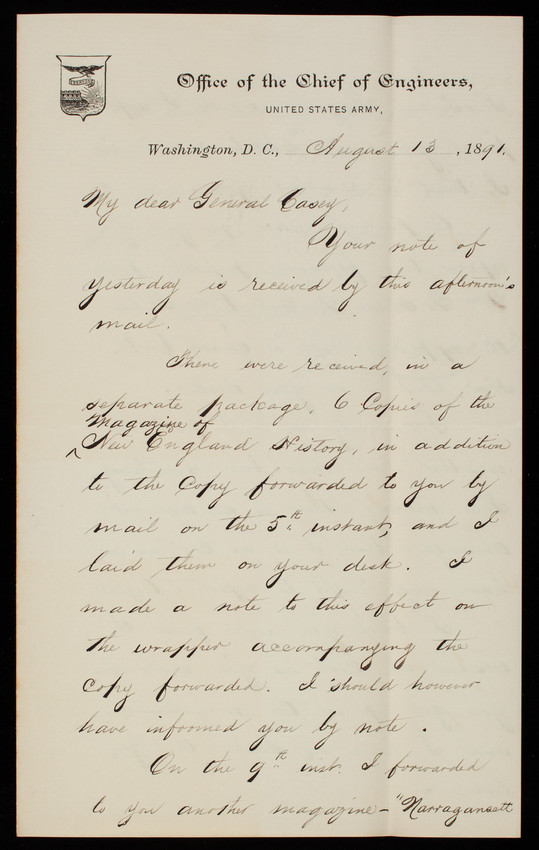 Office of the Chief of Engineers,
UNITED STATES ARMY,
Washington, D. C., August 13, 1891.
My dear General Casey,
Your note of
yesterday is received by this afternoon's
mail.
There were received, in a
separate package, 6 Copies of the
Magazine of
^ New England History, in addition
to the Copy forwarded to you by
mail on the 5th instant, and I
laid them on your desk. I
made a note to this effect on
the wrapper accompanying the
copy forwarded. I should however
have informed you by note.
On the 9th inst. I forwarded
to you another magazine - "Narragansett